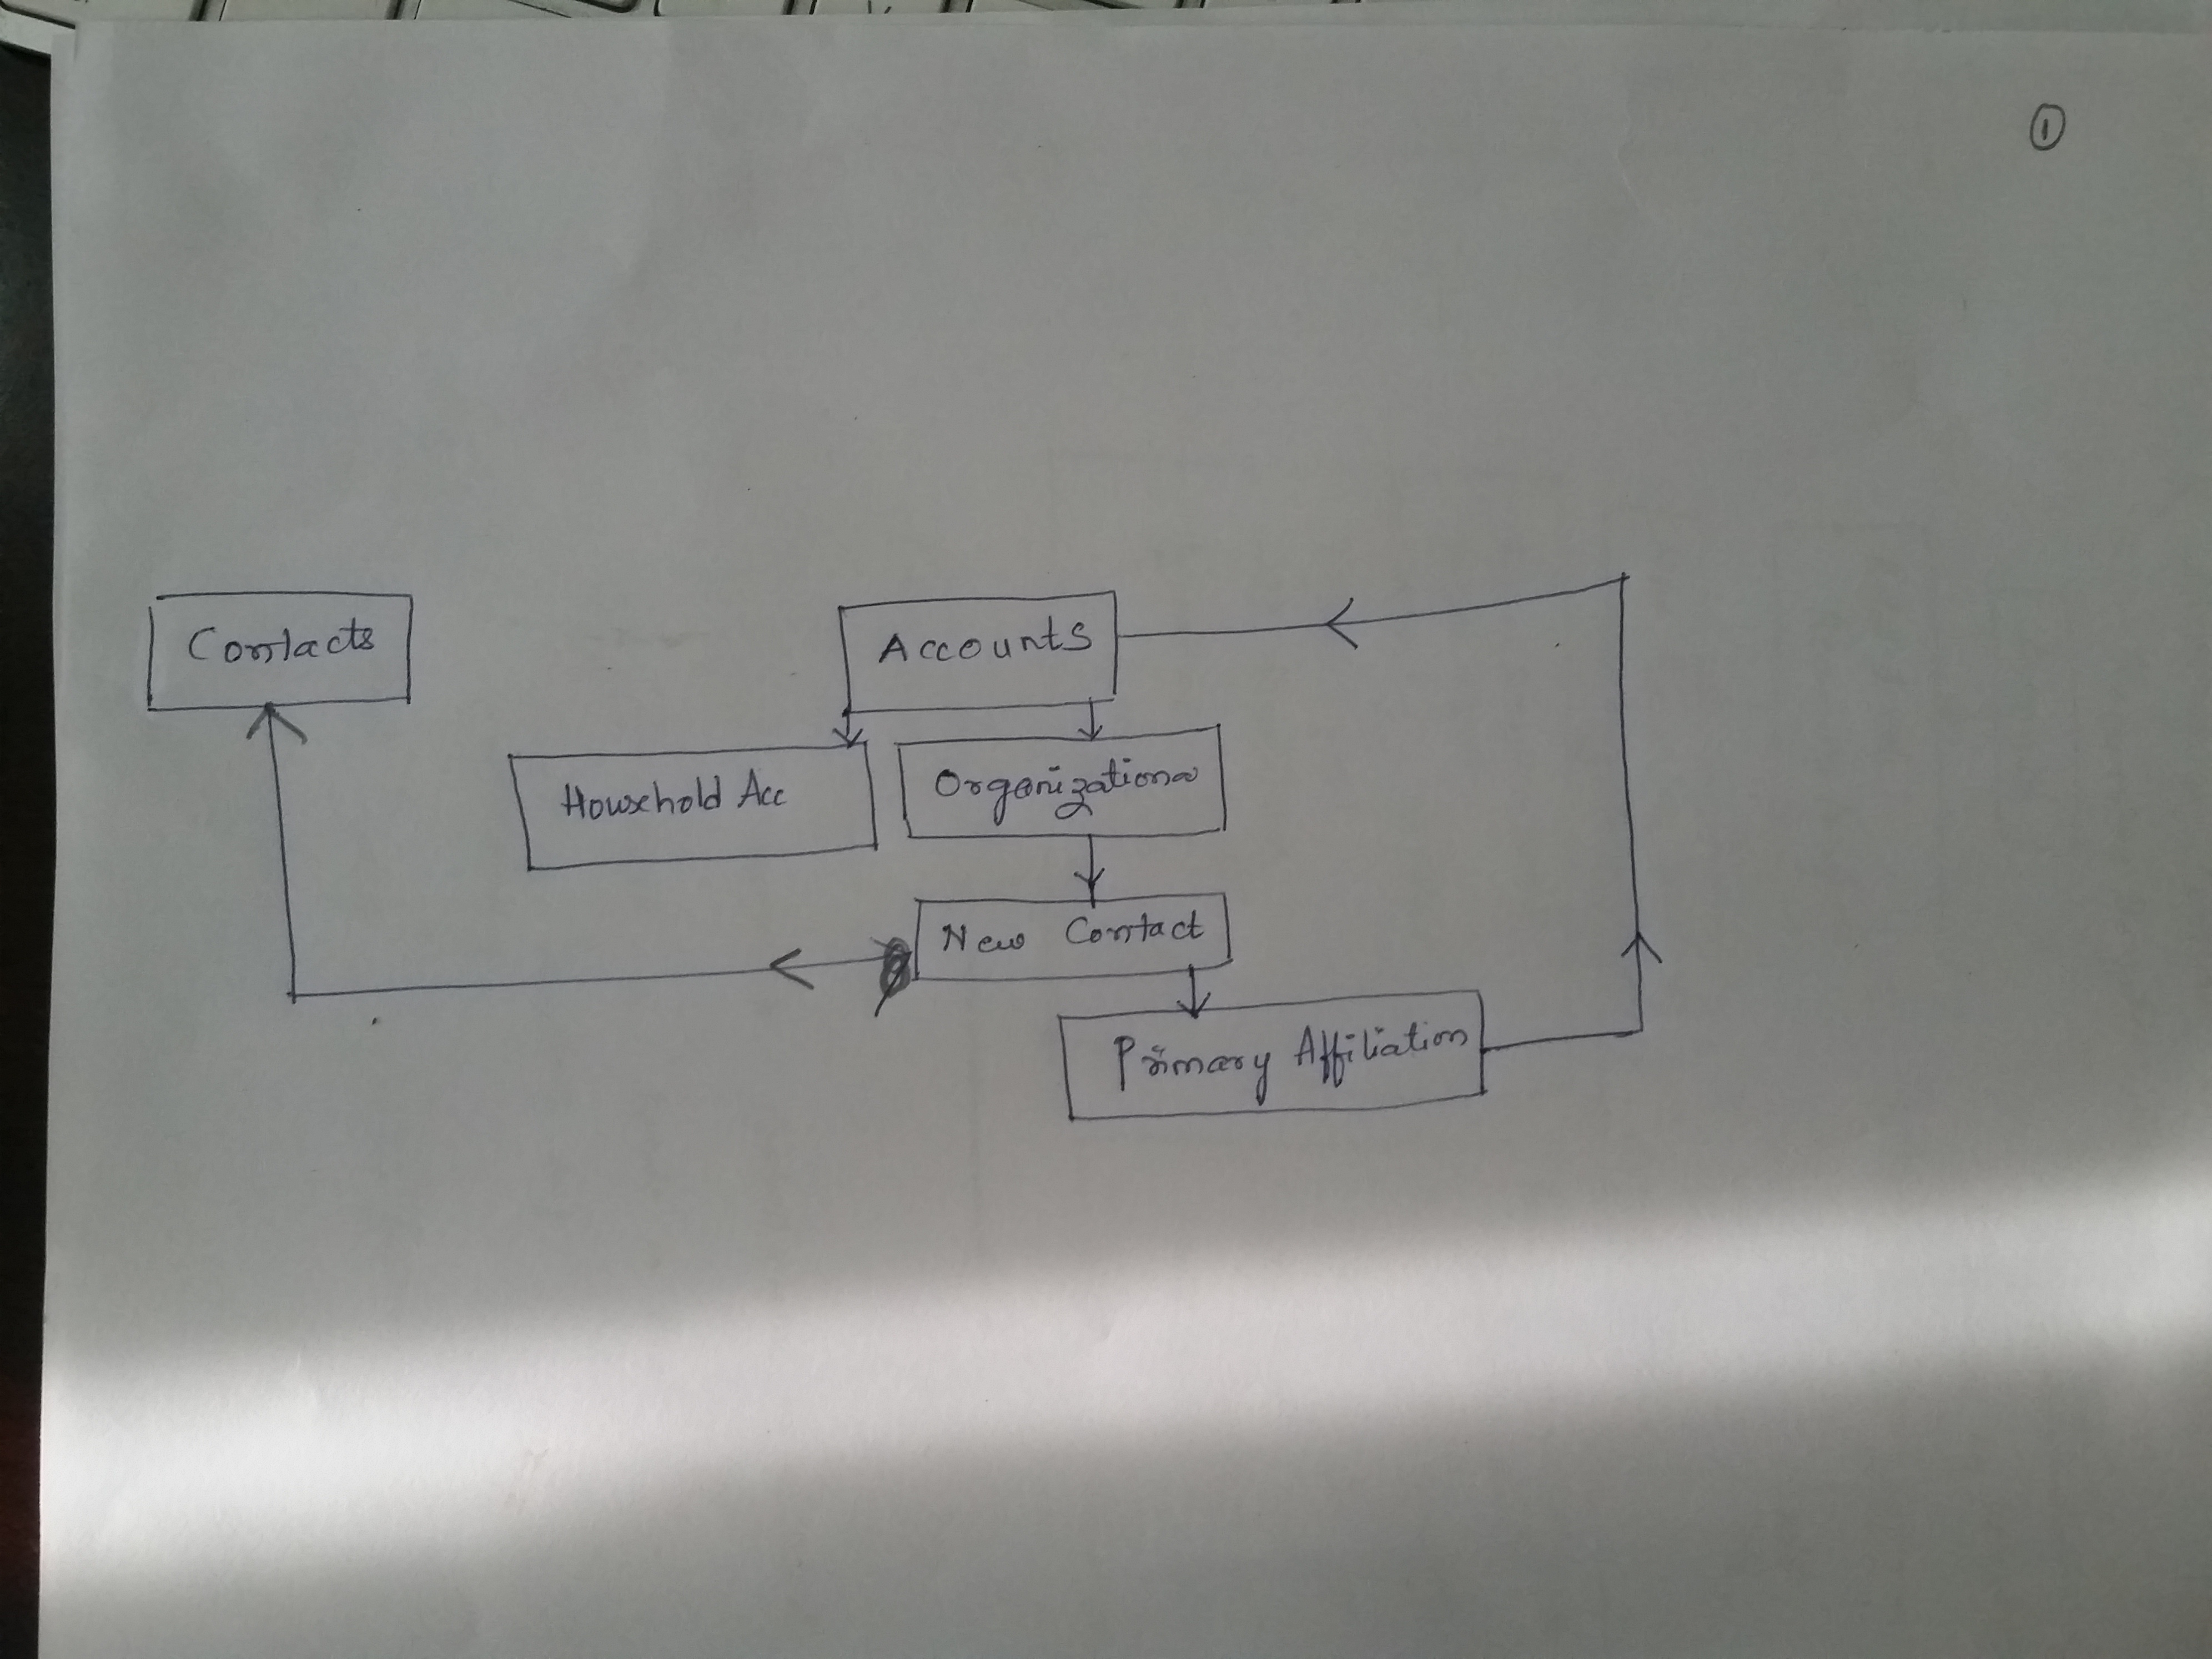 ①
Contacts
Accounts
Household Acc
Organizationa
New Contact
Primary Affiliation